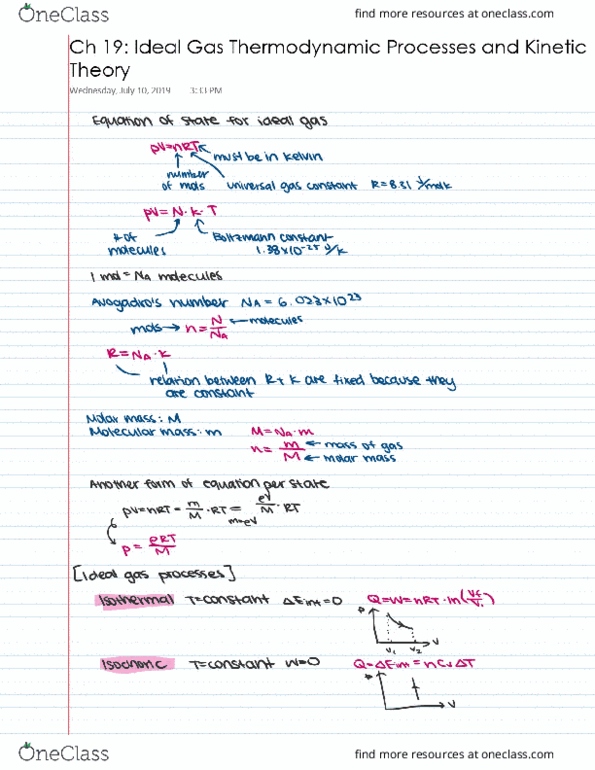 OneClass
find more resources at oneclass.com
Ch 19: Ideal Gas Thermodynamic Processes and Kinetic
Theory
Wednesday, July 10, 2019 3:33 PM
Equation of state for ideal gas
pV=nRT
must be in kelvin
number
of mols
universal gas constant R=8.31 J/molk
pV=N·k·T
# of
molecules
Boltzmann constant
J/K
1 mol = NA molecules
Avogadro's number NA = 6.023×10^23
mols → n = N/NA ← molecules
R = NA·k
relation between R + k are fixed because they
are constant
Molar mass: M
Molecular mass: m M=NA·m
n = m/M ← mass of gas
← molar mass
Another form of equation per state
pV=nRT = m/M · RT = ρV/M · RT
m=ρV
p = ρRT/M
[Ideal gas processes]
Isothermal T=constant ΔEint=0 Q=W=nRT·ln(Vf/Vi)
P
V
V1 V2
Isochoric T=constant W=0 Q=ΔEint=nCvΔT
P
V
OneClass
find more resources at oneclass.com